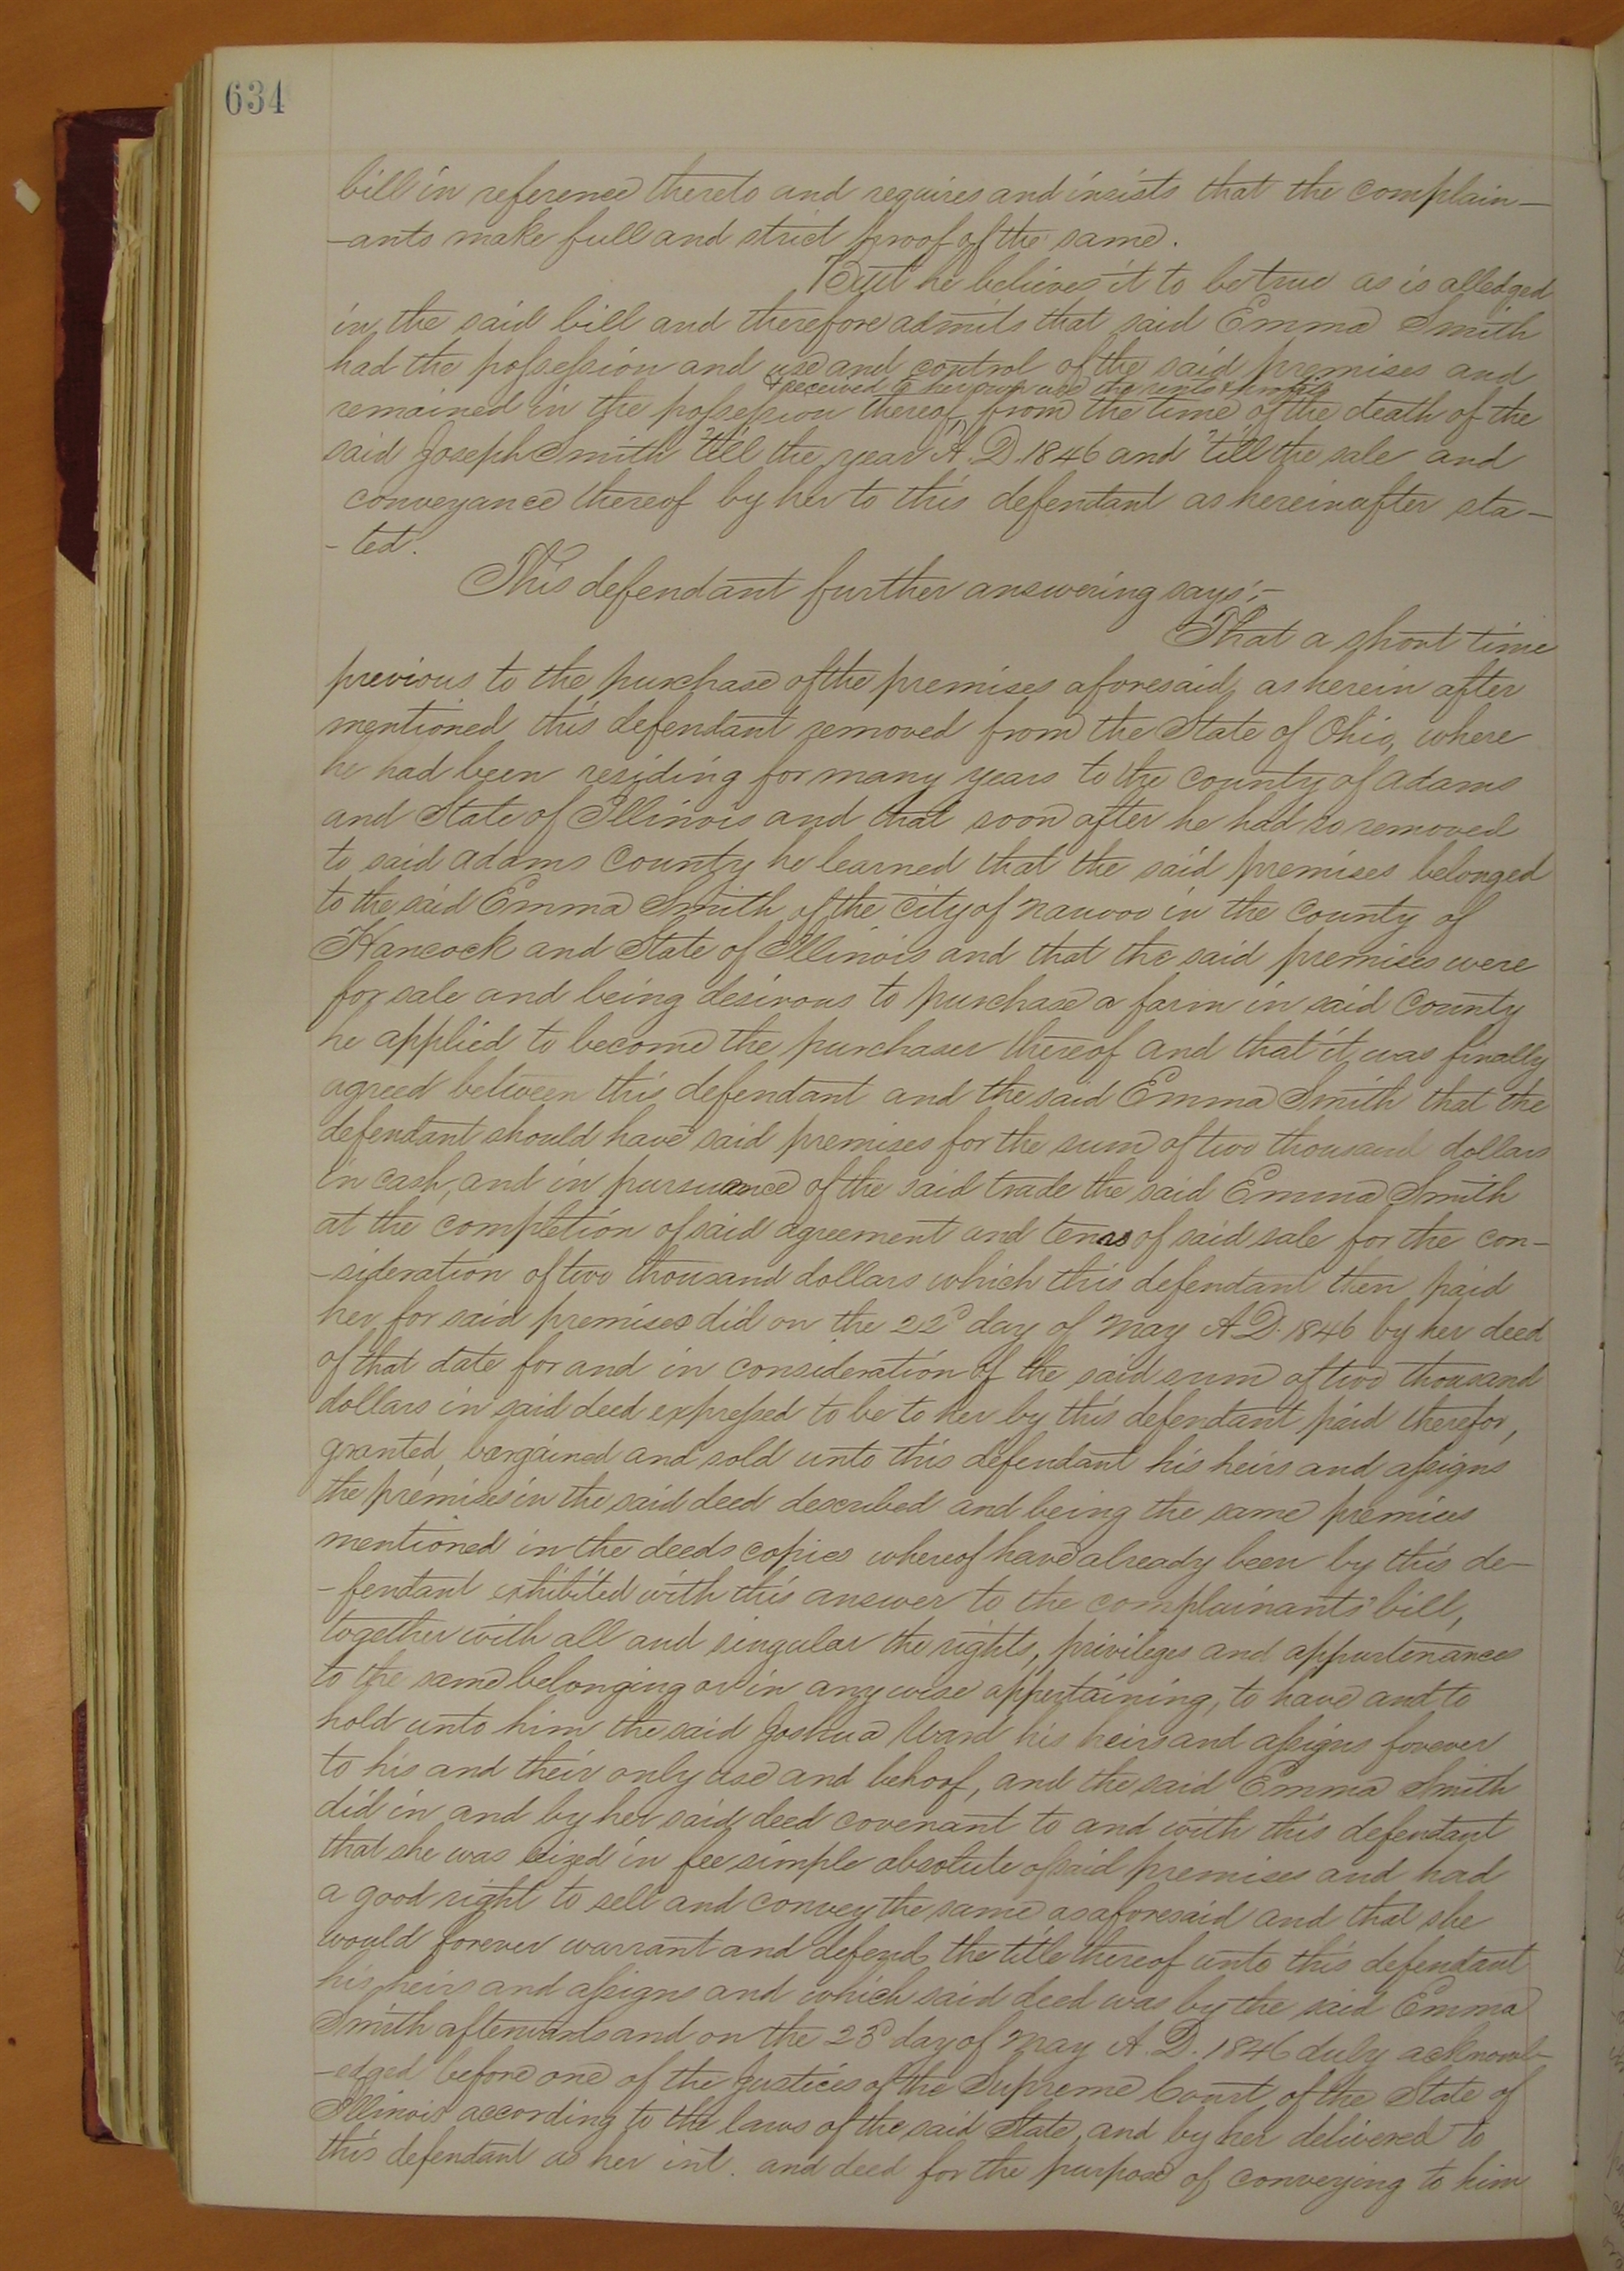 634
bill in reference thereto and requires and insists that the complain-
-ants make full and strict proof of the same.
But he believes it to be true as is alledged
in the said bill and therefore admits that said Emma Smith
had the possession and use and control of the said premises and
& received to her own use the rents & profits
remained in the possession thereof, from the time of the death of the
said Joseph Smith 'till the year A.D. 1846 and 'till the sale and
conveyance thereof by her to this defendant as hereinafter sta-
-ted.
This defendant further answering says:-
That a short time
previous to the purchase of the premises aforesaid, as herein after
mentioned this defendant removed from the State of Ohio, where
he had been residing for many years to the County of Adams
and State of Illinois and that soon after he had so removed
to said Adams County he learned that the said premises belonged
to the said Emma Smith of the City of Nauvoo in the County of
Hancock and State of Illinois and that the said premises were
for sale and being desirous to purchase a farm in said County
he applied to become the purchaser thereof and that it was finally
agreed between this defendant and the said Emma Smith that the
defendant should have said premises for the sum of two thousand dollars
in cash, and in pursuance of the said trade the said Emma Smith
at the completion of said agreement and of said sale for the con-
-sideration of two thousand dollars which this defendant then paid
her for said premises did on the 22d day of May A.D. 1846 by her deed
of that date for and in consideration of the said sum of two thousand
dollars in said deed expressed to be to her by this defendant paid therefor,
granted, bargained and sold unto this defendant his heirs and assigns
the premises in the said deed described and being the same premises
mentioned in the deeds copies whereof have already been by this de-
-fendant exhibited with this answer to the complainants' bill,
together with all and singular the rights, privileges and appurtenances
to the same belonging or in any wise appertaining, to have and to
hold unto him the said Joshua Ward his heirs and assigns forever
to his and their only use and behoof, and the said Emma Smith
did in and by her said deed covenant to and with this defendant
that she was seized in fee simple absolute of said premises and had
a good right to sell and convey the same as aforesaid and that she
would forever warrant and defend the title thereof unto this defendant
his heirs and assigns and which said deed was by the said Emma
Smith afterwards and on the 23d day of May A.D. 1846 duly acknowl-
-edged before one of the Justices of the Supreme Court of the State of
Illinois according to the laws of the said State, and by her delivered to
this defendant as her int. and deed for the purpose of conveying to him